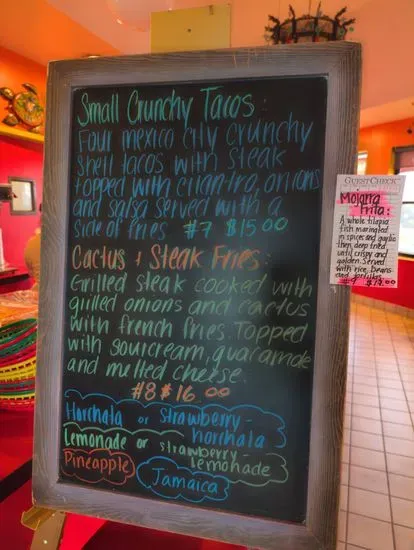 Small Crunchy Tacos:
Four mexico city crunchy
shell tacos with steak
topped with cilantro, onions
and salsa served with a
side of fries #7 $15.00
Cactus & Steak Fries:
Grilled steak cooked with
grilled onions and cactus
with french fries. Topped
with sourcream, guacamole
and melted cheese.
#8 $16.00
Horchata or strawberry-
horchata
Lemonade or strawberry-
lemonade
Pineapple
Jamaica
GUEST CHECK
Mojarra
Frita:
A whole tilapia
fish marinated
in spices and garlic
then deep fried
until crispy and
golden. Served
with rice, beans
and tortillas
#9